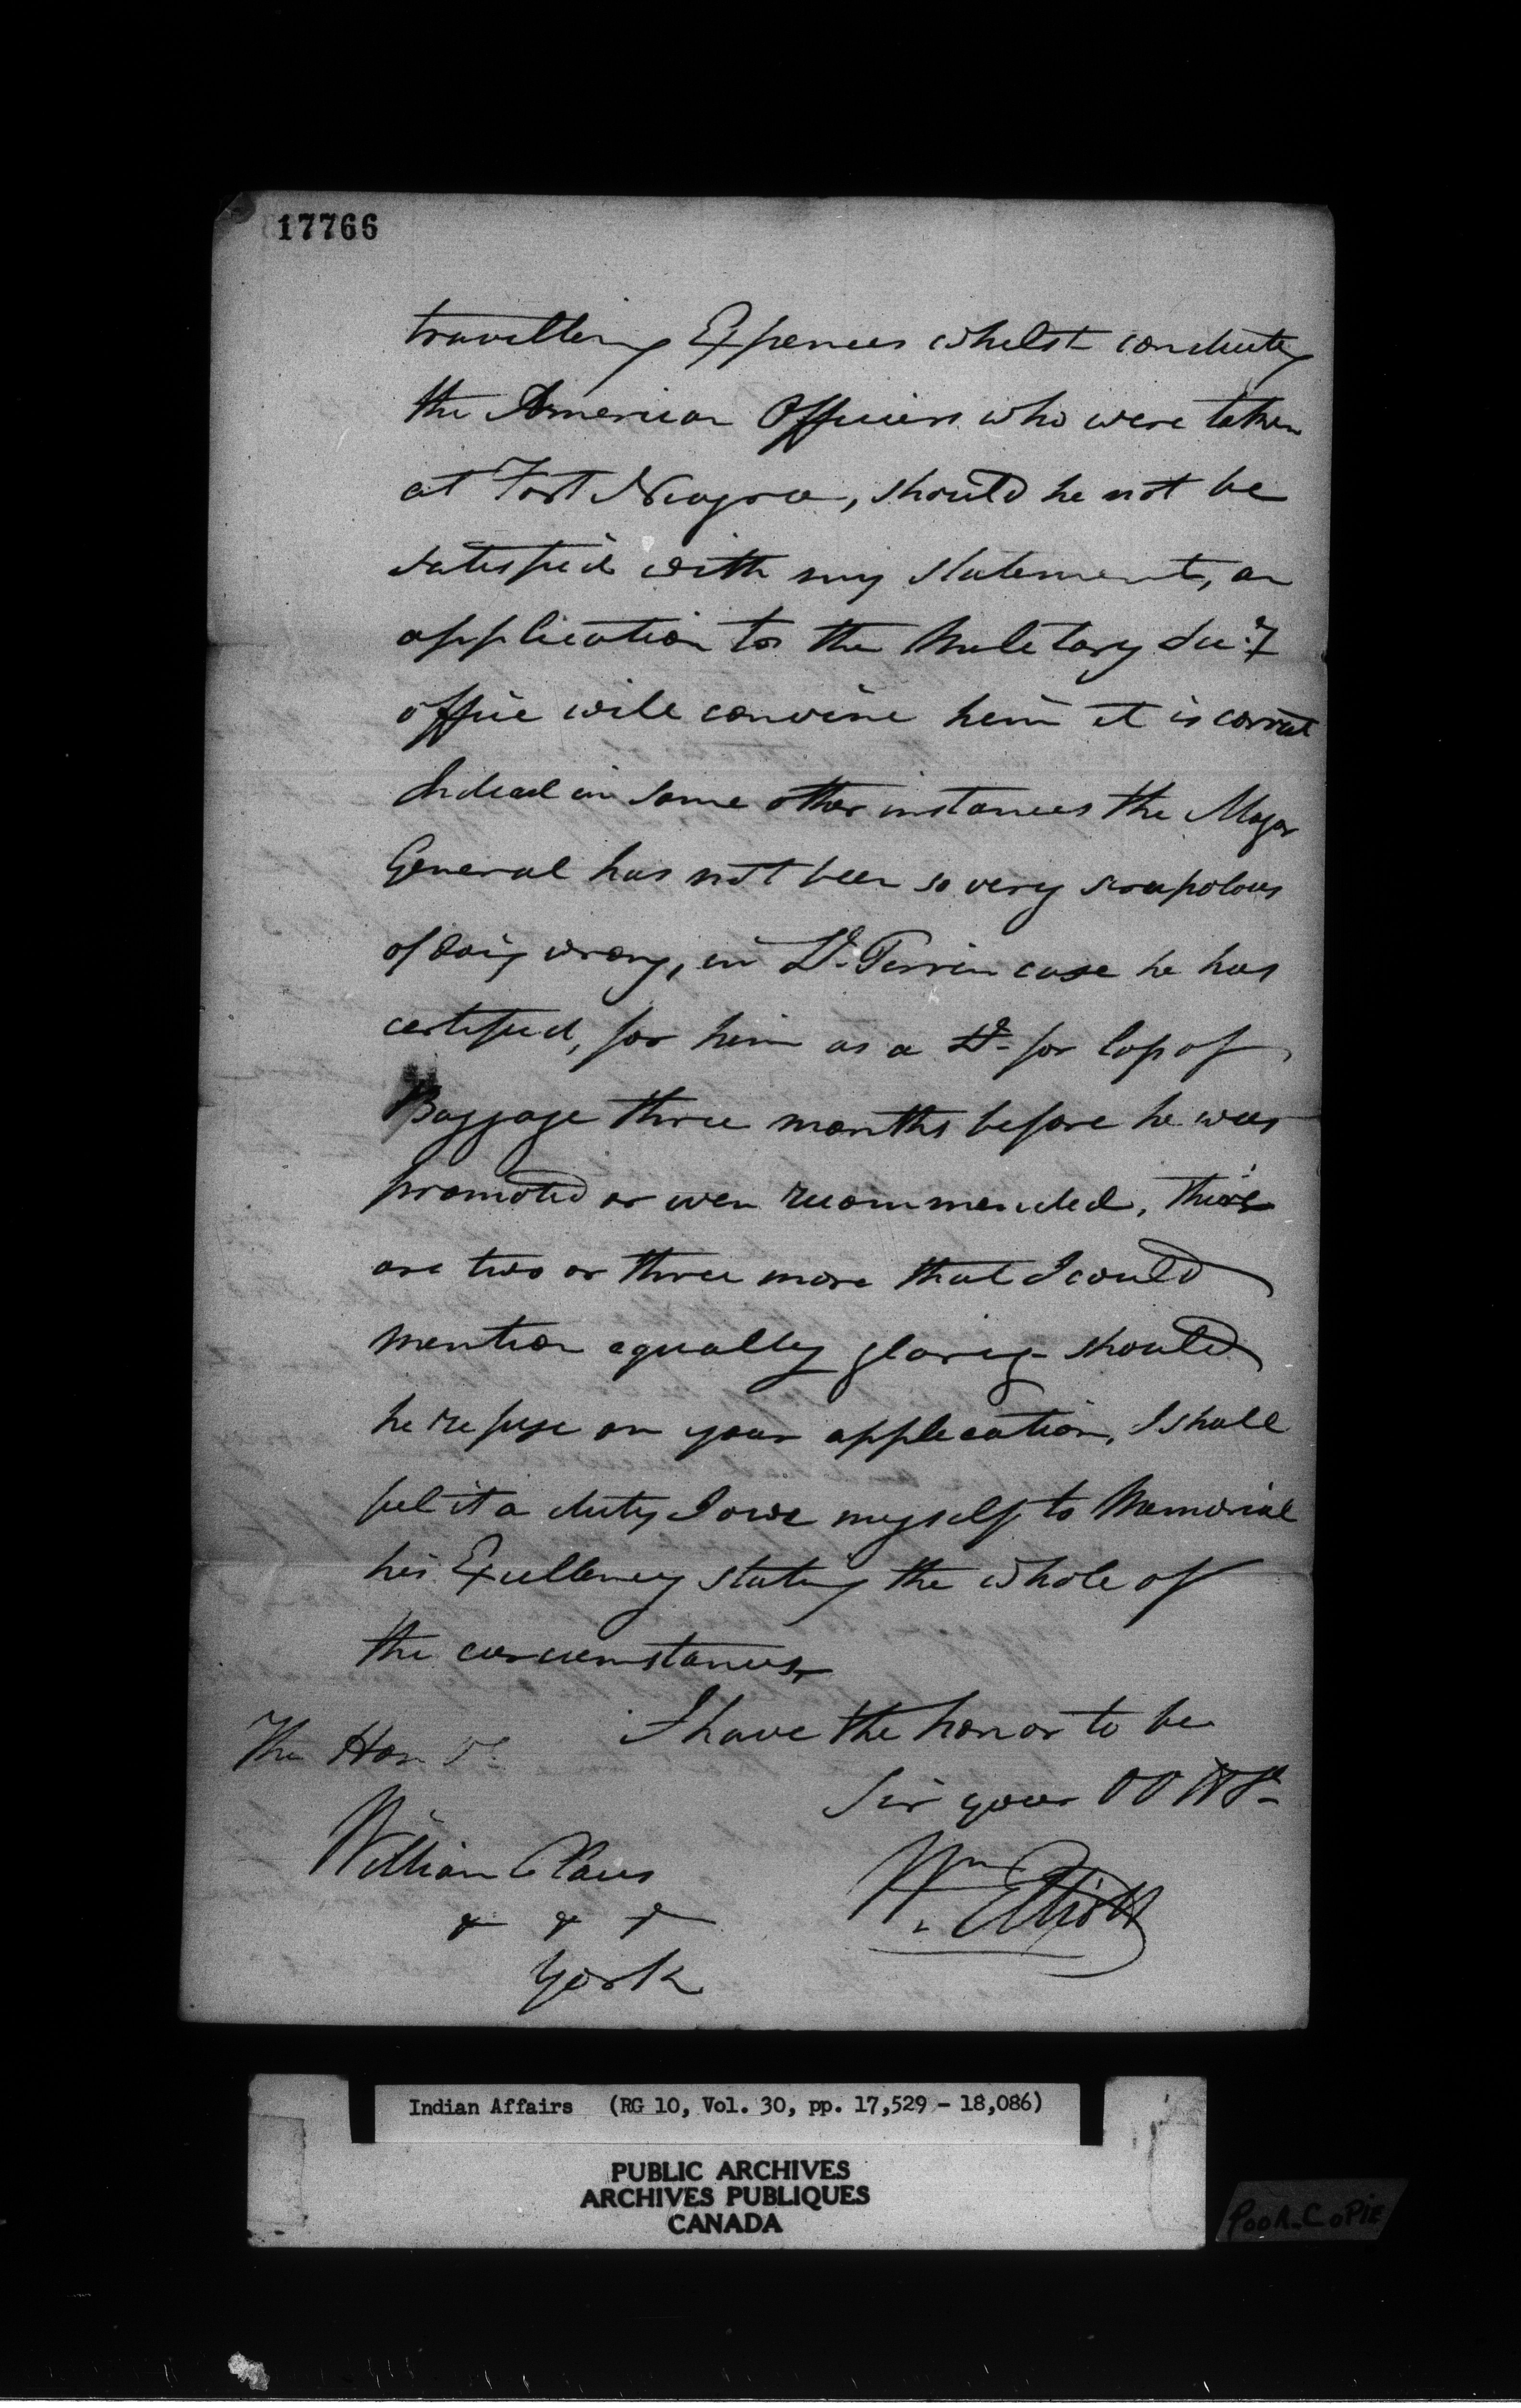 17766
travelling Expences whilst conducting
the American Officers who were taken
at Fort Niagra, should he not be
satisfied with my statement, an
application to the Military Secy
office will convince him it is correct
Indeed in some other instances the Major
General has not been so very scrupolous
of doing wrong, in Lt. Perrin case he has
certified, for him as a Lt. for loss of
Baggage three months before he was
promoted or even recommended, there
are two or three more that I could
mention equally glaring should
he refuse on your application, I shall
feel it a duty I owe myself to Memorial
his Excellency stating the whole of
the circumstances,
I have the honor to be
Sir your OO HSt
The Honble
William Claus
& & &
York
Wm. Elliott
Indian Affairs (RG 10, Vol. 30, pp. 17,529 - 18,086)
PUBLIC ARCHIVES
ARCHIVES PUBLIQUES
CANADA
POOR COPIE